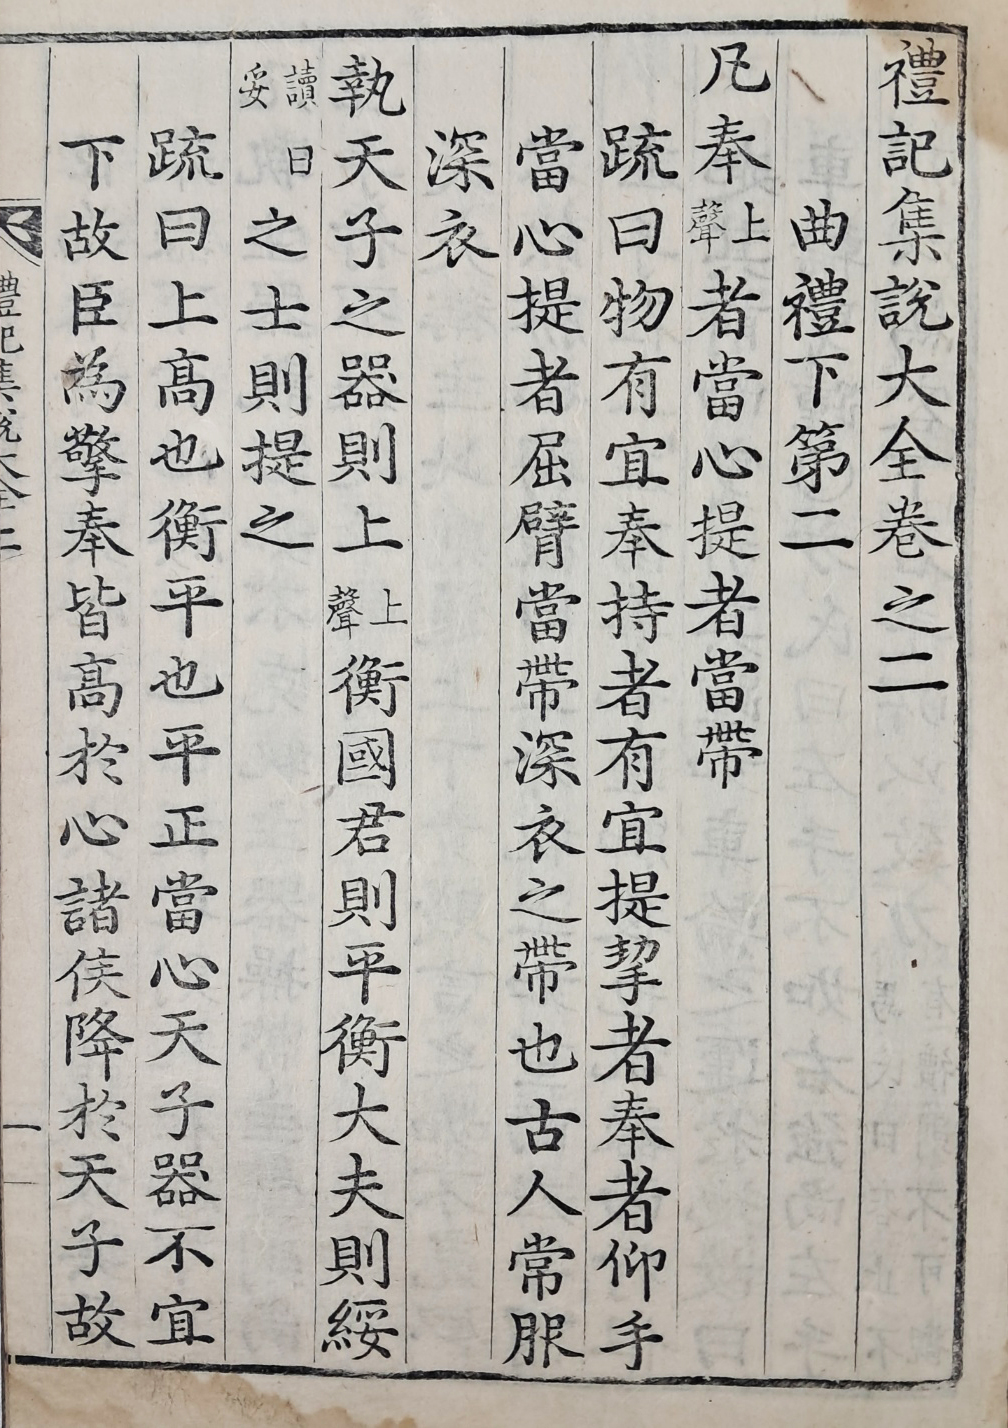 禮記集說大全卷之二
曲禮下第二
凡奉上聲者當心提者當帶
疏曰物有宜奉持者有宜提挈者奉者仰手
當心提者屈臂當帶深衣之帶也古人常服
深衣
執天子之器則上上聲衡國君則平衡大夫則綏
讀曰妥之士則提之
疏曰上高也衡平也平正當心天子器不宜
下故臣為擎奉皆高於心諸侯降於天子故
禮記集說大全二
一